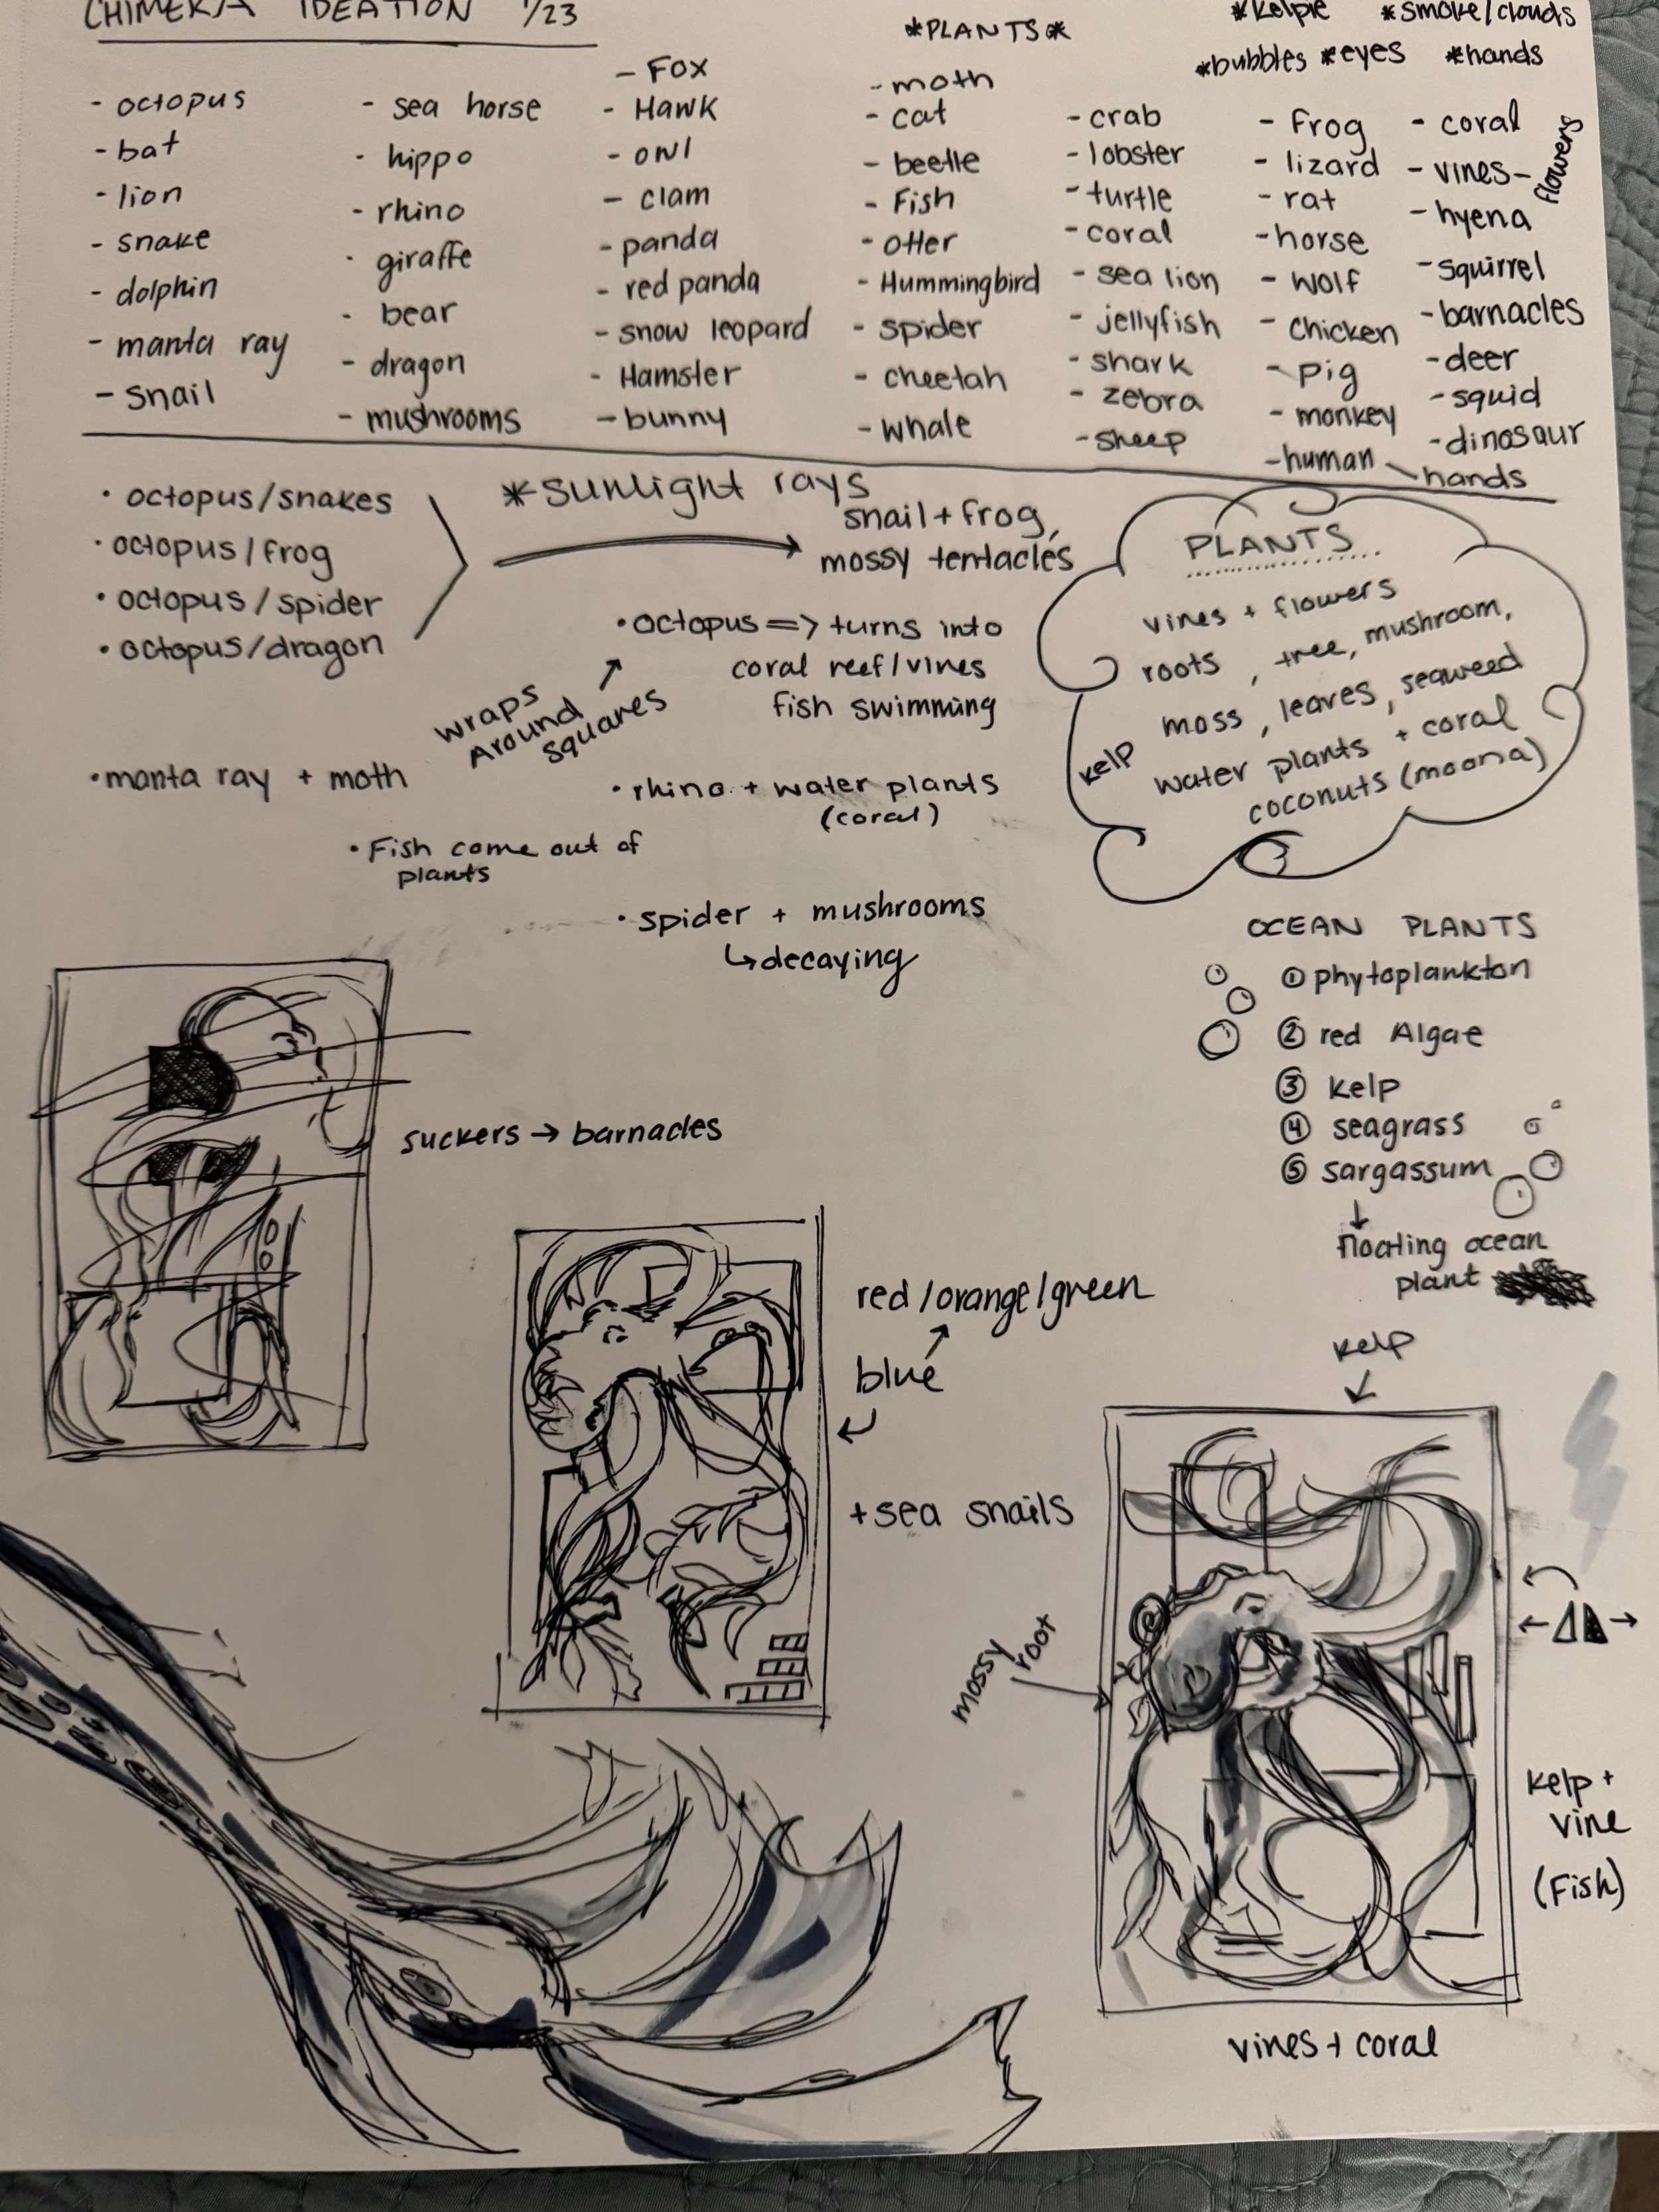 CHIMERA IDEATION 1/23
*PLANTS*
*Kelpie *smoke/clouds
*bubbles *eyes *hands
- octopus
- bat
- lion
- snake
- dolphin
- manta ray
- snail
- sea horse
- hippo
- rhino
- giraffe
- bear
- dragon
- mushrooms
- Fox
- Hawk
- owl
- clam
- panda
- red panda
- snow leopard
- Hamster
- bunny
- moth
- cat
- beetle
- Fish
- otter
- Hummingbird
- spider
- cheetah
- whale
- crab
- lobster
- turtle
- coral
- sea lion
- jellyfish
- shark
- zebra
- sheep
- Frog
- lizard
- rat
- horse
- wolf
- chicken
- pig
- monkey
- human - hands
- coral
- vines - flowers
- hyena
- squirrel
- barnacles
- deer
- squid
- dinosaur
• octopus/snakes
• octopus/frog
• octopus/spider
• octopus/dragon
*sunlight rays
snail + frog,
mossy tentacles
• octopus => turns into
coral reef/vines
fish swimming
wraps
Around
squares
• manta ray + moth
• rhino + water plants
(coral)
• Fish come out of
plants
• spider + mushrooms
↳decaying
PLANTS
vines + flowers
roots, tree, mushroom,
moss, leaves, seaweed
kelp
water plants + coral
coconuts (moana)
OCEAN PLANTS
① phytoplankton
② red Algae
③ kelp
④ seagrass
⑤ sargassum
↓
floating ocean
plant
suckers → barnacles
red/orange/green
blue
+sea snails
kelp
mossy
root
kelp +
vine
(Fish)
vines + coral